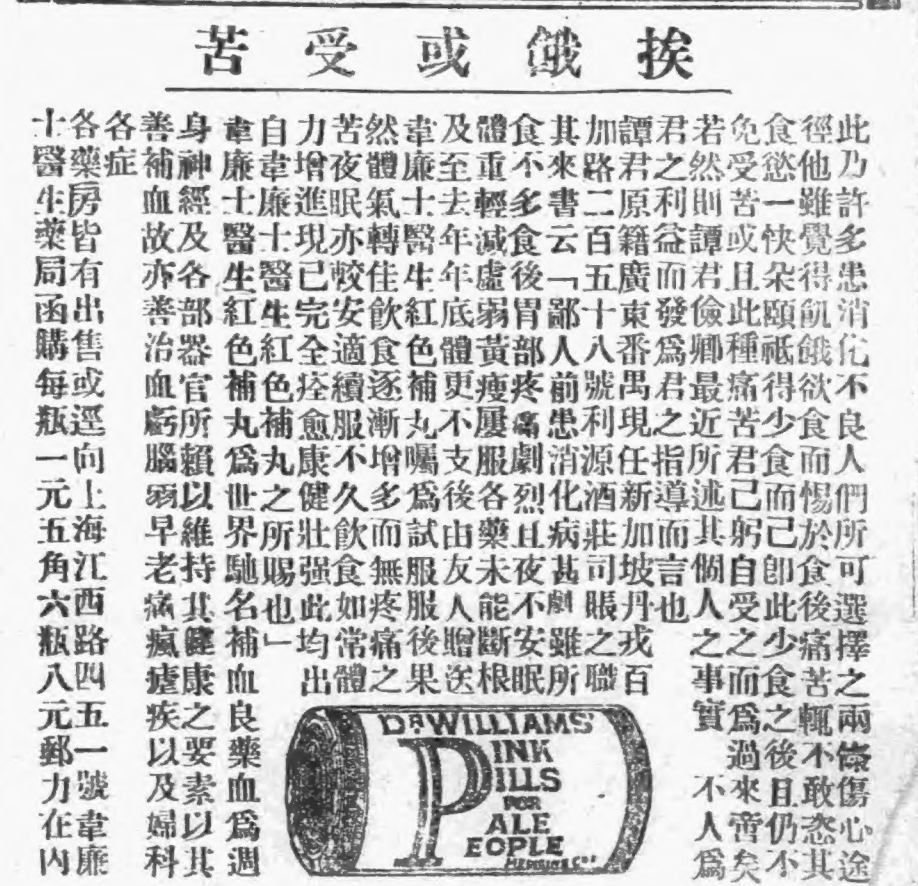 挨餓或受苦
此乃許多患消化不良人們所可選擇之兩條傷心途
徑他雖覺得飢餓欲食而惕於食後痛苦輒不敢恣其
食慾一快朵頤祗得少食而已即此少食之後且仍不
免受苦或且此種痛苦君己躬自受之而爲過來嘗矣
若然則譚君儉卿最近所述其個人之事實 不人爲
君之利益而發爲君之指導而言也
譚君原籍廣東番禺現任新加坡丹戎百
加路二百五十八號利源酒莊司賬之職
其來書云「鄙人前患消化病甚劇雖所
食不多食後胃部疼痛劇烈且夜不安眠
體重輕減虛弱黃瘦屢服各藥未能斷根
及至去年年底體更不支後由友人贈送
韋廉士醫生紅色補丸囑爲試服服後果
然體氣轉佳飲食逐漸增多而無疼痛之
苦夜眠亦較安適續服不久飲食如常體
力增進現已完全痊愈康健壯强此均出
自韋廉士醫生紅色補丸之所賜也」
韋廉士醫生紅色補丸爲世界馳名補血良藥血爲週
身神經及各部器官所賴以維持其健康之要素以其
善補血故亦善治血虧腦弱早老痛瘋瘧疾以及婦科
各症
各藥房皆有出售或逕向上海江西路四五一號韋廉
士醫生藥局函購每瓶一元五角六瓶八元郵力在內
DR WILLIAMS'
PINK
PILLS
FOR
PALE
PEOPLE
MEDICINE Co